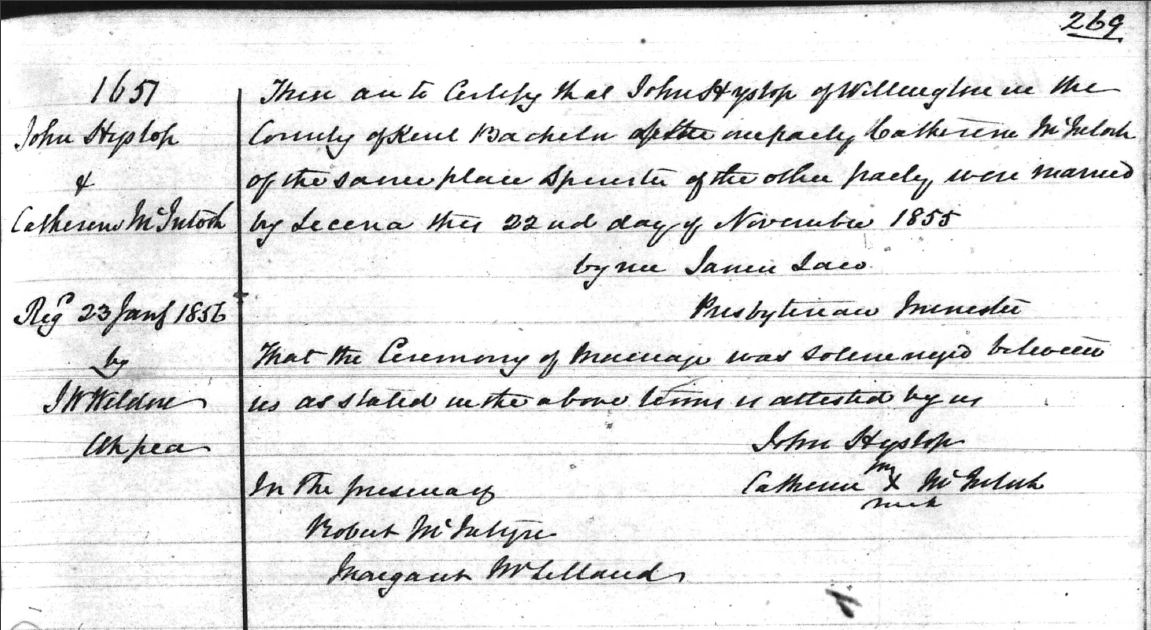 269
1651
John Hyslop
&
Catherine McIntosh
Regd 23 Jany 1856
by
J W Weldon
Clk peace
These are to Certify that John Hyslop of Wellington in the
County of Kent Bachelor of the one party Catherine McIntosh
of the same place Spinster of the other party were married
by Licence this 22nd day of November 1855
by me James Law
Presbyterian Minister
That the Ceremony of Marriage was solemnized between
us as stated in the above terms is attested by us
John Hyslop
Catherine X McIntosh
my
mark
In the presence of
Robert McIntyre
Margaret